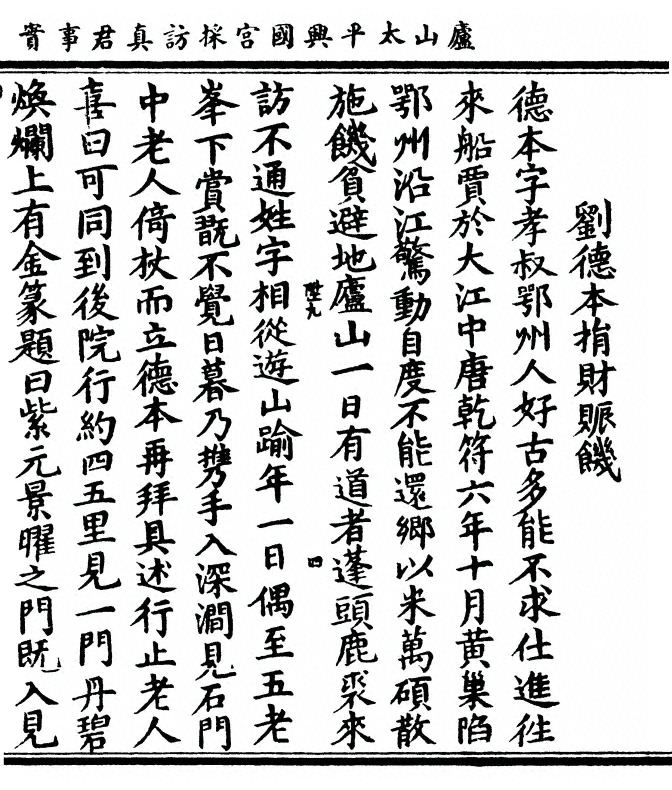 廬山太平興國宮採訪真君事實
劉德本捐財賑饑
德本字孝叔鄂州人好古多能不求仕進徃
來船賈於大江中唐乾符六年十月黃巢陷
鄂州沿江驚動自度不能還鄉以米萬碩散
施饑貧避地廬山一日有道者蓬頭鹿裘來
陞九
四
訪不通姓字相從遊山踰年一日偶至五老
峯下賞翫不覺日暮乃攜手入深澗見石門
中老人倚杖而立德本再拜具述行止老人
喜曰可同到後院行約四五里見一門丹碧
煥爛上有金篆題曰紫元景曜之門既入見